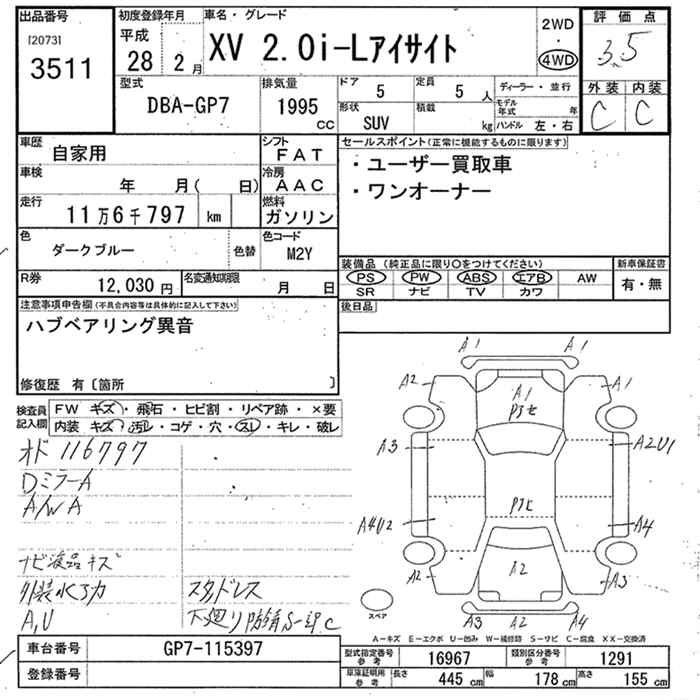 出品番号
[2073]
3511
初度登録年月
平成
28 2 月
車名・グレード
XV 2.0i-Lアイサイト
2WD
・
4WD
評価点
3.5
外装 内装
C C
型式
DBA-GP7
排気量
1995
CC
ドア 5
定員 5 人
形状
SUV
積載
kg
ディーラー・並行
モデル年式 年
ハンドル 左・右
車歴
自家用
シフト
FAT
車検
年 月( 日)
冷房
AAC
走行
11万6千797 km
燃料
ガソリン
色
ダークブルー
色替
色コード
M2Y
R券
12,030 円
名変通知期限
月 日
セールスポイント(正常に機能するものに限ります)
・ユーザー買取車
・ワンオーナー
装備品(純正品に限り○をつけてください)
PS PW ABS エアB AW
SR ナビ TV カワ
新車保証書
有・無
後日品
注意事項申告欄(不具合内容等は具体的に記入して下さい)
ハブベアリング異音
修復歴 有〔箇所 〕
検査員記入欄
FW キズ・飛石・ヒビ割・リペア跡・×要
内装 キズ・汚レ・コゲ・穴・スレ・キレ・破レ
オド 116797
DミラーA
A/W A
ナビ液晶キズ
外装水アカ
A,U
スタッドレス
下廻り防錆
A1 A1
A2 A1 A1
A3 A2U1
A4U2 A4
A2 A2 A3
A3 A2 A4
スペア
A-キズ E-エクボ U-凹み W-補修跡 S-サビ C-腐食 XX-交換済
車台番号
GP7-115397
登録番号
型式指定番号
参考
16967
類別区分番号
参考
1291
車庫証明用
参考
長さ 445 cm
幅 178 cm
高さ 155 cm